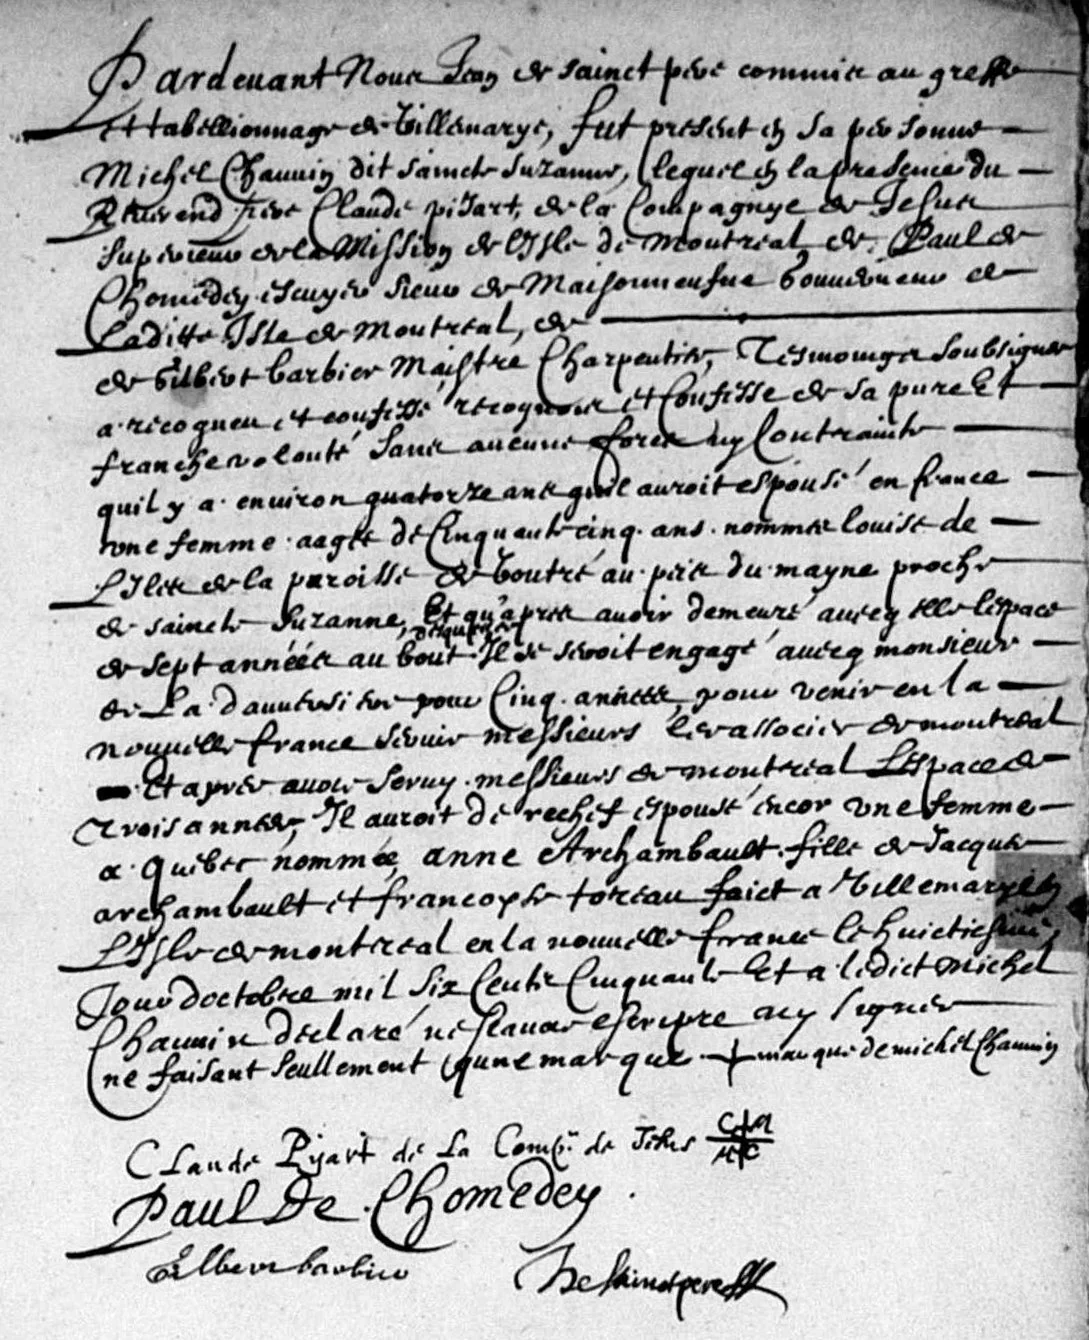 Pardevant Nous Jean de sainct pere commis au greffe
et tabellionnage de Villemarye, fut present en sa personne
Michel Chauvin dit saincte suzanne, lequel en la presence du
Reverend pere Claude pijart, de la Compagnye de Jesus
superieur de la Mission de l'Isle de Montreal de Paul de
Chomedey escuyer sieur de Maisonneufve Gouverneur de
Laditte Isle de Montreal, de
de Gilbert barbier Maistre Charpentier, Tesmoings soubsignez
a recogneu et confessé recognoist et Confesse de sa pure Et
franche volonté sans aucune force ny Contrainte
quil y a environ quatorze ans quil auroit espousé en france
une femme aagee de Cinquante cinq ans nommee louise de
Liles de la paroisse de Voutré au pais du mayne proche
de saincte Suzanne, Et qu'apres avoir demeuré avecq elle l'espace
de sept années au bout desquelles Il se seroit engagé avecq monsieur
de La dauversiere pour Cinq années, pour venir en la
nouvelle france servir messieurs les associez de montreal
Et apres avoir servy messieurs de montreal L'espace de
Trois années, Il auroit de rechef espousé encor une femme
a Quebec nommée anne Archambault fille de Jacques
archambault et francoyse toreau faict a Villemarye en
L'Isle de montreal en la nouvelle france le huictiesme
Jour d'octobre mil six Cents Cinquante Et a ledict Michel
Chauvin declaré ne scavoir escripre ny signer
ne faisant seullement qune marque + marque de michel Chauvin
Claude Pijart de La Comp. de Jesus
Paul De Chomedey
Gilbert barbier
De sainctpere